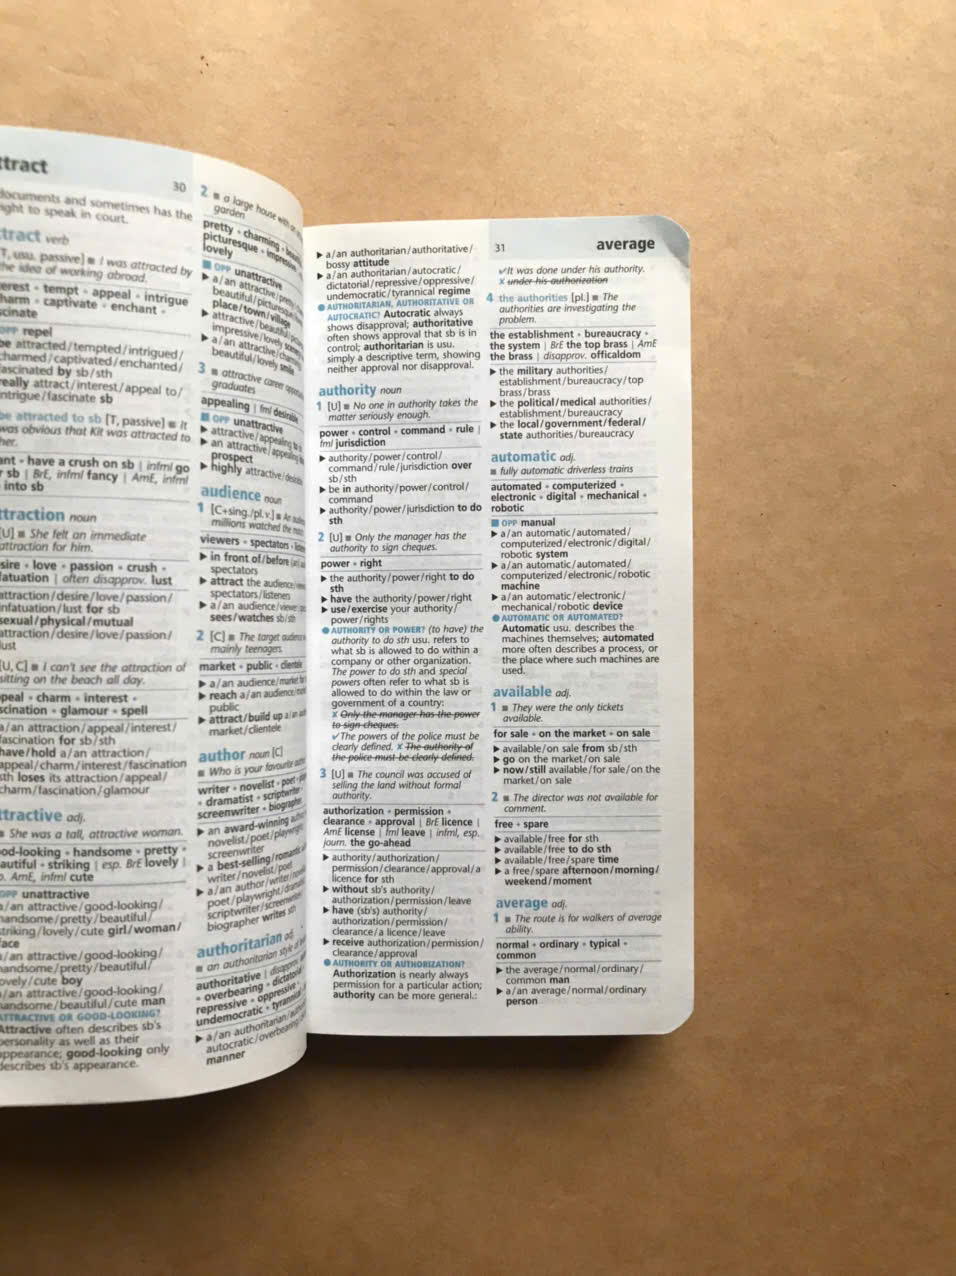 ttract
30
documents and sometimes has the
ight to speak in court.
tract verb
[T, usu. passive] ■ I was attracted by
the idea of working abroad.
erest • tempt • appeal • intrigue
harm • captivate • enchant •
scinate
OPP repel
be attracted/tempted/intrigued/
charmed/captivated/enchanted/
fascinated by sb/sth
really attract/interest/appeal to/
intrigue/fascinate sb
be attracted to sb [T, passive] ■ It
was obvious that Kit was attracted to
her.
ant • have a crush on sb | infml go
r sb | BrE, infml fancy | AmE, infml
into sb
ttraction noun
[U] ■ She felt an immediate
attraction for him.
sire • love • passion • crush •
fatuation | often disapprov. lust
attraction/desire/love/passion/
infatuation/lust for sb
sexual/physical/mutual
attraction/desire/love/passion/
lust
[U, C] ■ I can't see the attraction of
sitting on the beach all day.
peal • charm • interest •
scination • glamour • spell
a/an attraction/appeal/interest/
fascination for sb/sth
have/hold a/an attraction/
appeal/charm/interest/fascination
sth loses its attraction/appeal/
charm/fascination/glamour
ttractive adj.
■ She was a tall, attractive woman.
od-looking • handsome • pretty •
autiful • striking | esp. BrE lovely |
AmE, infml cute
OPP unattractive
a/an attractive/good-looking/
handsome/pretty/beautiful/
striking/lovely/cute girl/woman/
face
a/an attractive/good-looking/
handsome/pretty/beautiful/
lovely/cute boy
a/an attractive/good-looking/
handsome/beautiful/cute man
ATTRACTIVE OR GOOD-LOOKING?
Attractive often describes sb's
personality as well as their
appearance; good-looking only
describes sb's appearance.
2 ■ a large house with
garden
pretty • charming •
picturesque • impressive
lovely
■ OPP unattractive
▶ a/an attractive/pretty
beautiful/picturesque
place/town/village
▶ attractive/beautiful
impressive/lovely scenery
▶ a/an attractive/charming
beautiful/lovely smile
3 ■ attractive career
graduates
appealing | fml desirable
■ OPP unattractive
▶ attractive/appealing to
▶ an attractive/appealing
prospect
▶ highly attractive/desirable
audience noun
1 [C+sing./pl. v.] ■ An
millions watched the
viewers • spectators •
▶ in front of/before
spectators
▶ attract the audience
spectators/listeners
▶ a/an audience/viewer
sees/watches sb/sth
2 [C] ■ The target audience
mainly teenagers.
market • public • clientele
▶ a/an audience/market
▶ reach a/an audience
public
▶ attract/build up a/an
market/clientele
author noun [C]
■ Who is your favourite
writer • novelist • poet •
• dramatist • scriptwriter
screenwriter • biographer
▶ an award-winning
novelist/poet/playwright
screenwriter
▶ a best-selling/romantic
writer/novelist/poet
▶ a/an author/writer
poet/playwright
scriptwriter/screenwriter
biographer writes sth
authoritarian adj.
■ an authoritarian style of
authoritative | disapprov.
• overbearing • dictatorial
repressive • oppressive •
undemocratic • tyrannical
▶ a/an authoritarian
autocratic/overbearing
manner
▶ a/an authoritarian/authoritative/
bossy attitude
▶ a/an authoritarian/autocratic/
dictatorial/repressive/oppressive/
undemocratic/tyrannical regime
● AUTHORITARIAN, AUTHORITATIVE OR
AUTOCRATIC? Autocratic always
shows disapproval; authoritative
often shows approval that sb is in
control; authoritarian is usu.
simply a descriptive term, showing
neither approval nor disapproval.
authority noun
1 [U] ■ No one in authority takes the
matter seriously enough.
power • control • command • rule |
fml jurisdiction
▶ authority/power/control/
command/rule/jurisdiction over
sb/sth
▶ be in authority/power/control/
command
▶ authority/power/jurisdiction to do
sth
2 [U] ■ Only the manager has the
authority to sign cheques.
power • right
▶ the authority/power/right to do
sth
▶ have the authority/power/right
▶ use/exercise your authority/
power/rights
● AUTHORITY OR POWER? (to have) the
authority to do sth usu. refers to
what sb is allowed to do within a
company or other organization.
The power to do sth and special
powers often refer to what sb is
allowed to do within the law or
government of a country:
✗ Only the manager has the power
to sign cheques.
✓The powers of the police must be
clearly defined. ✗ The authority of
the police must be clearly defined.
3 [U] ■ The council was accused of
selling the land without formal
authority.
authorization • permission •
clearance • approval | BrE licence |
AmE license | fml leave | infml, esp.
journ. the go-ahead
▶ authority/authorization/
permission/clearance/approval/a
licence for sth
▶ without sb's authority/
authorization/permission/leave
▶ have (sb's) authority/
authorization/permission/
clearance/a licence/leave
▶ receive authorization/permission/
clearance/approval
● AUTHORITY OR AUTHORIZATION?
Authorization is nearly always
permission for a particular action;
authority can be more general.:
31
average
✓It was done under his authority.
✗ under his authorization
4 the authorities [pl.] ■ The
authorities are investigating the
problem.
the establishment • bureaucracy •
the system | BrE the top brass | AmE
the brass | disapprov. officaldom
▶ the military authorities/
establishment/bureaucracy/top
brass/brass
▶ the political/medical authorities/
establishment/bureaucracy
▶ the local/government/federal/
state authorities/bureaucracy
automatic adj.
■ fully automatic driverless trains
automated • computerized •
electronic • digital • mechanical •
robotic
■ OPP manual
▶ a/an automatic/automated/
computerized/electronic/digital/
robotic system
▶ a/an automatic/automated/
computerized/electronic/robotic
machine
▶ a/an automatic/electronic/
mechanical/robotic device
● AUTOMATIC OR AUTOMATED?
Automatic usu. describes the
machines themselves; automated
more often describes a process, or
the place where such machines are
used.
available adj.
1 ■ They were the only tickets
available.
for sale • on the market • on sale
▶ available/on sale from sb/sth
▶ go on the market/on sale
▶ now/still available/for sale/on the
market/on sale
2 ■ The director was not available for
comment.
free • spare
▶ available/free for sth
▶ available/free to do sth
▶ available/free/spare time
▶ a free/spare afternoon/morning/
weekend/moment
average adj.
1 ■ The route is for walkers of average
ability.
normal • ordinary • typical •
common
▶ the average/normal/ordinary/
common man
▶ a/an average/normal/ordinary
person